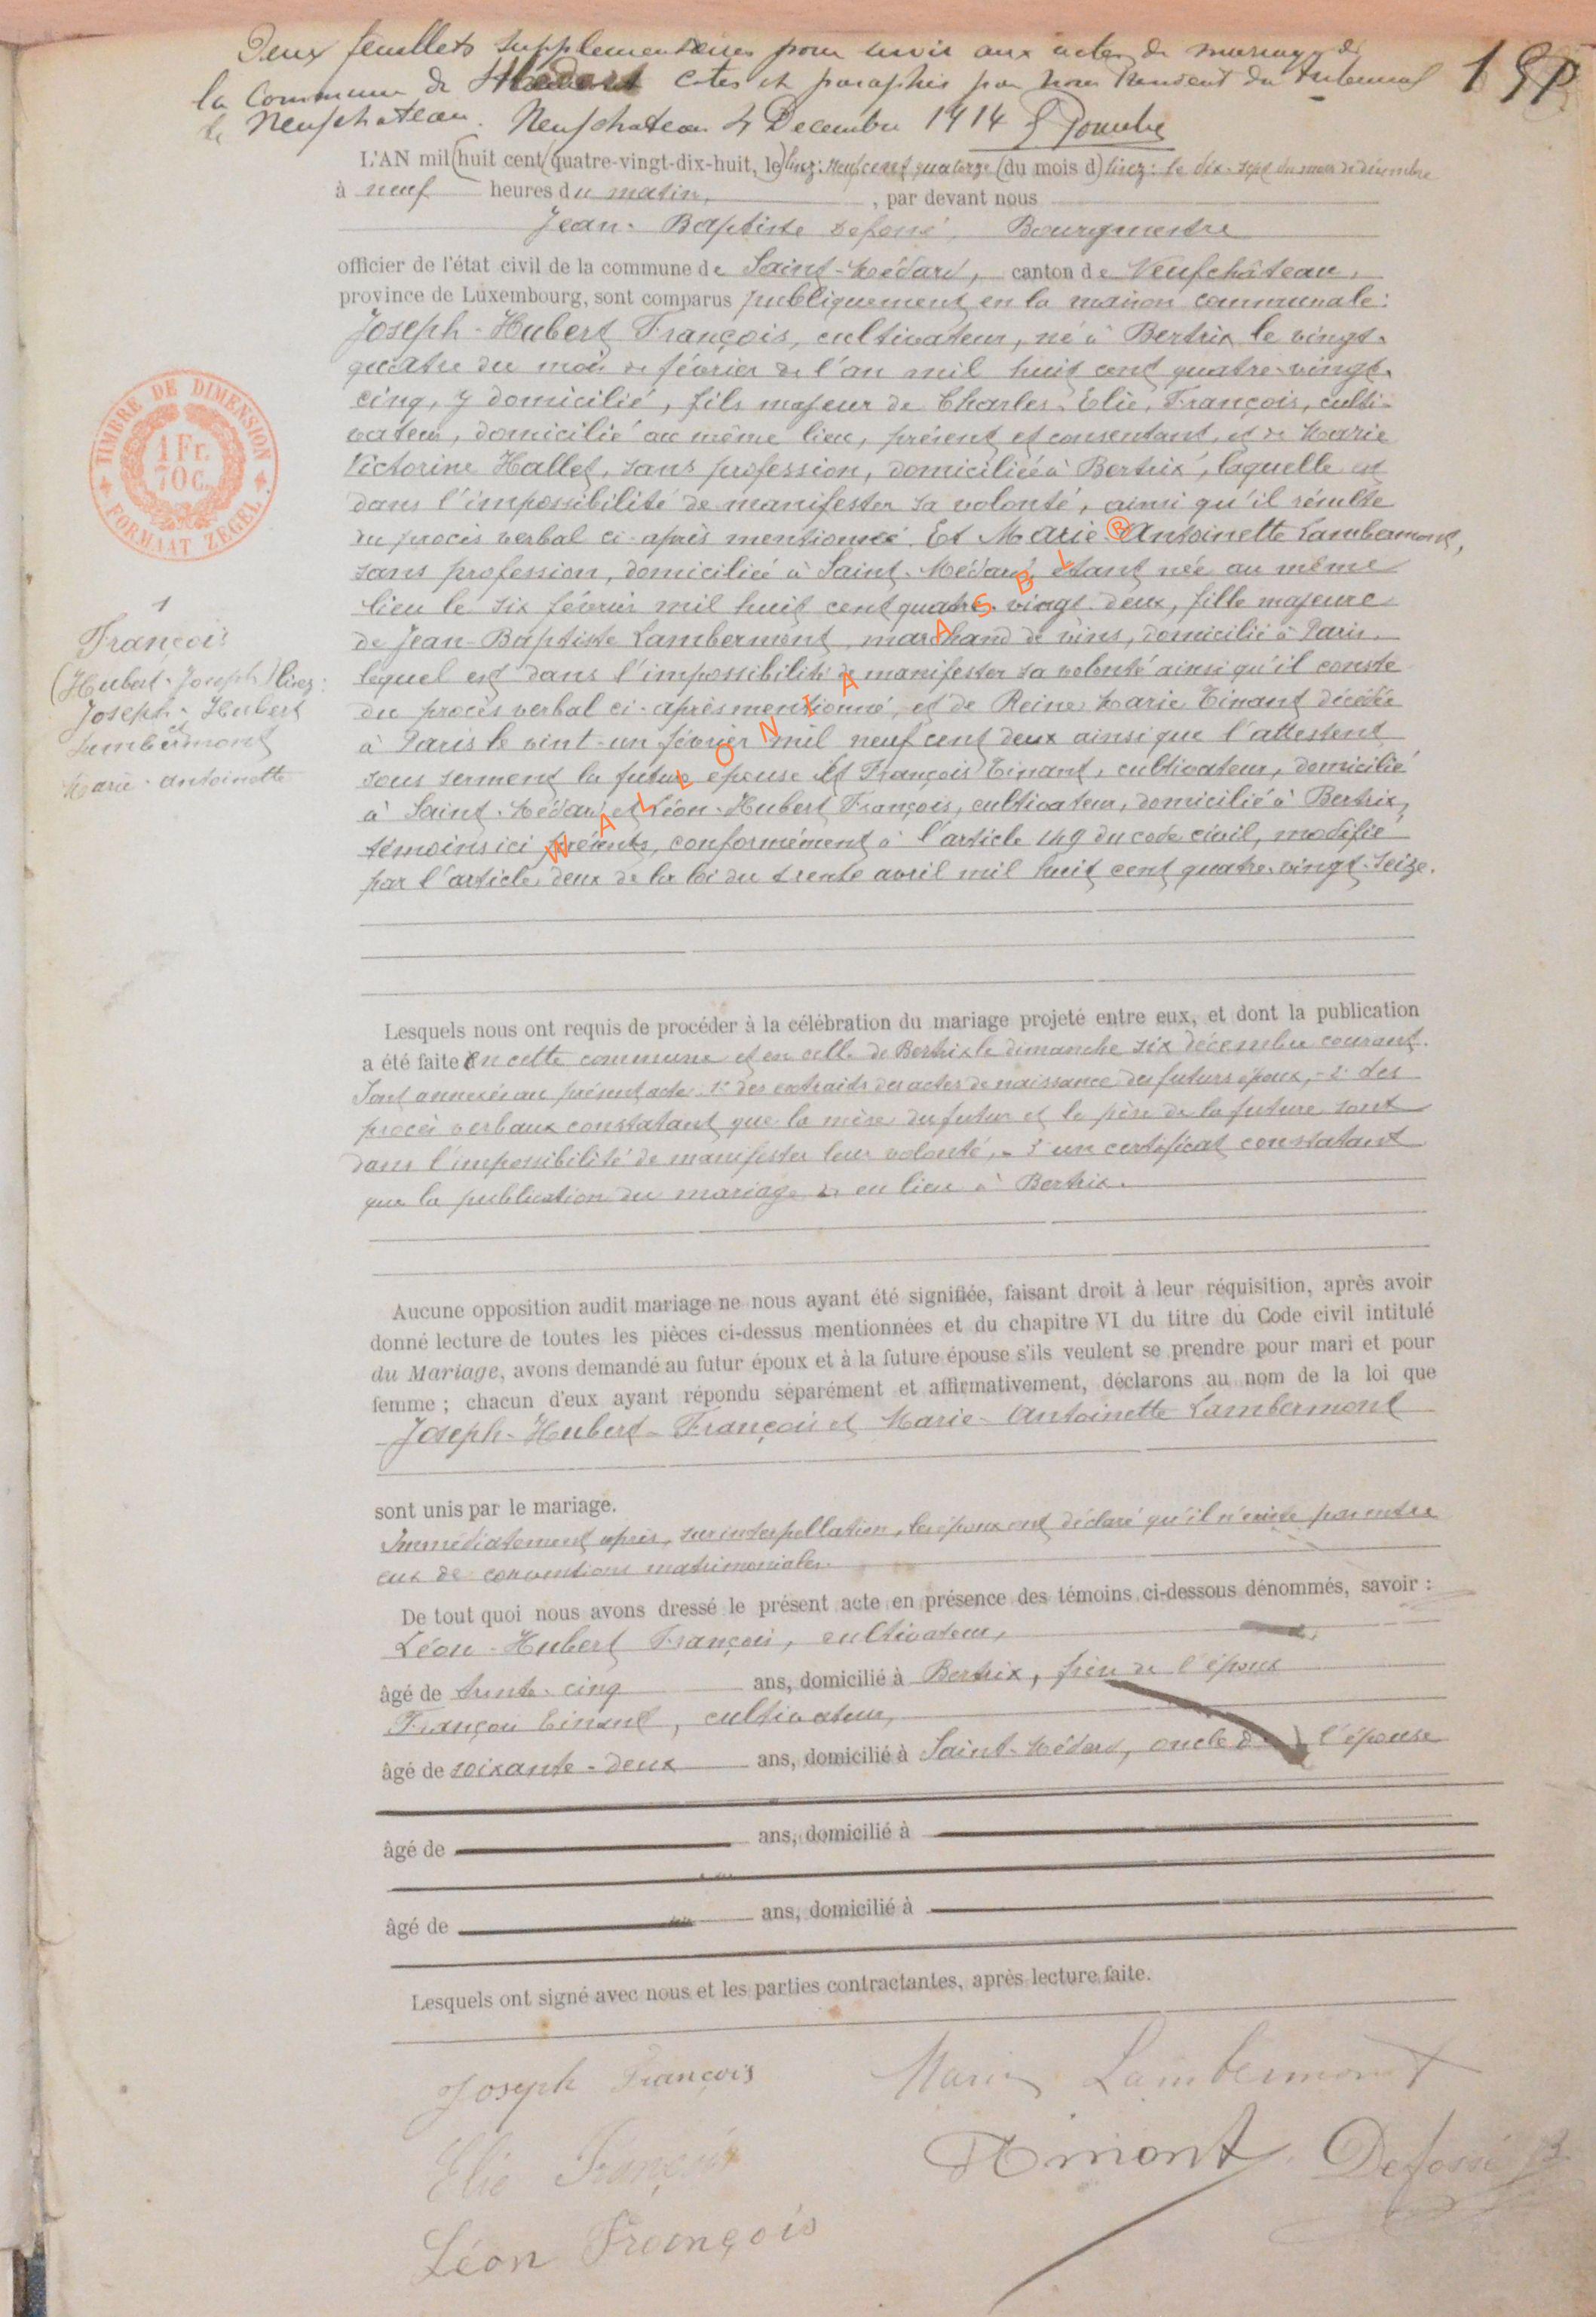 Deux feuillets supplémentaires pour servir aux actes de mariage de
la Commune de St Médard cotés et paraphés par nous Président du Tribunal
de Neufchateau. Neufchateau 4 Décembre 1914
1 er
L'AN mil (huit cent quatre-vingt-dix-huit, le) lisez: neuf cent quatorze (du mois d) lisez: le dix-sept du mois de décembre
à neuf heures du matin, , par devant nous
Jean-Baptiste Defossé, Bourgmestre
officier de l'état civil de la commune de Saint-Médard, canton de Neufchâteau,
province de Luxembourg, sont comparus publiquement en la maison communale:
Joseph-Hubert François, cultivateur, né à Bertrix le vingt-
quatre du mois de février de l'an mil huit cent quatre-vingt-
cinq, y domicilié, fils majeur de Charles-Elie, François, culti-
vateur, domicilié au même lieu, présent et consentant, et de Marie
Victorine Hallet, sans profession, domiciliée à Bertrix, laquelle est
dans l'impossibilité de manifester sa volonté, ainsi qu'il résulte
du procès verbal ci-après mentionné. Et Marie-Antoinette Lambermont,
sans profession, domiciliée à Saint-Médard étant née au même
lieu le six février mil huit cent quatre-vingt-deux, fille majeure
de Jean-Baptiste Lambermont, marchand de vins, domicilié à Paris,
lequel est dans l'impossibilité de manifester sa volonté ainsi qu'il conste
du procès verbal ci-après mentionné, et de Reine Marie Tinant décédée
à Paris le vint-un février mil neuf cent deux ainsi que l'attestent
sous serment la future épouse et François Tinant, cultivateur, domicilié
à Saint-Médard et Léon-Hubert François, cultivateur, domicilié à Bertrix,
témoins ici présents, conformément à l'article 149 du code civil, modifié
par l'article deux de la loi du trente avril mil huit cent quatre-vingt-seize.
TIMBRE DE DIMENSION
1 Fr.
70 C.
FORMAAT ZEGEL
1
François
(Hubert-Joseph) lisez:
Joseph-Hubert
et
Lambermont
Marie-Antoinette
WALLONIA ASBL ®
Lesquels nous ont requis de procéder à la célébration du mariage projeté entre eux, et dont la publication
a été faite en cette commune et en celle de Bertrix le dimanche six décembre courant.
Sont annexés au présent acte: 1° des extraits des actes de naissance des futurs époux, - 2° des
procès verbaux constatant que la mère du futur et le père de la future sont
dans l'impossibilité de manifester leur volonté, - 3° un certificat constatant
que la publication du mariage a eu lieu à Bertrix.
Aucune opposition audit mariage ne nous ayant été signifiée, faisant droit à leur réquisition, après avoir
donné lecture de toutes les pièces ci-dessus mentionnées et du chapitre VI du titre du Code civil intitulé
du Mariage, avons demandé au futur époux et à la future épouse s'ils veulent se prendre pour mari et pour
femme ; chacun d'eux ayant répondu séparément et affirmativement, déclarons au nom de la loi que
Joseph-Hubert-François et Marie-Antoinette Lambermont
sont unis par le mariage.
Immédiatement après, sur interpellation, les époux ont déclaré qu'il n'existe pas entre
eux de conventions matrimoniales.
De tout quoi nous avons dressé le présent acte en présence des témoins ci-dessous dénommés, savoir :
Léon-Hubert François, cultivateur,
âgé de trente-cinq ans, domicilié à Bertrix, frère de l'époux
François Tinant, cultivateur,
âgé de soixante-deux ans, domicilié à Saint-Médard, oncle de l'épouse
âgé de ans, domicilié à
âgé de ans, domicilié à
Lesquels ont signé avec nous et les parties contractantes, après lecture faite.
Joseph François Marie Lambermont
Elie François Defossé
Léon François